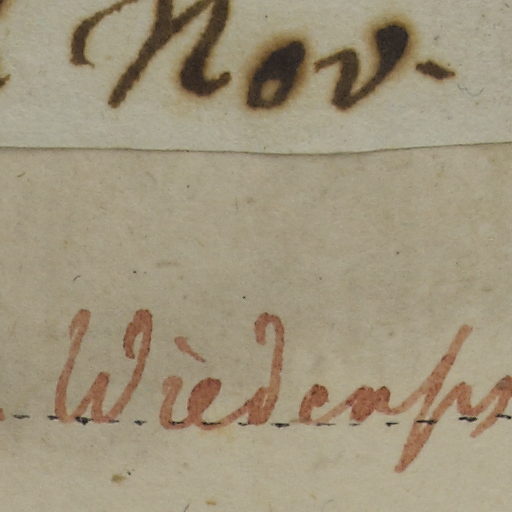 Nov.
Wiedensp